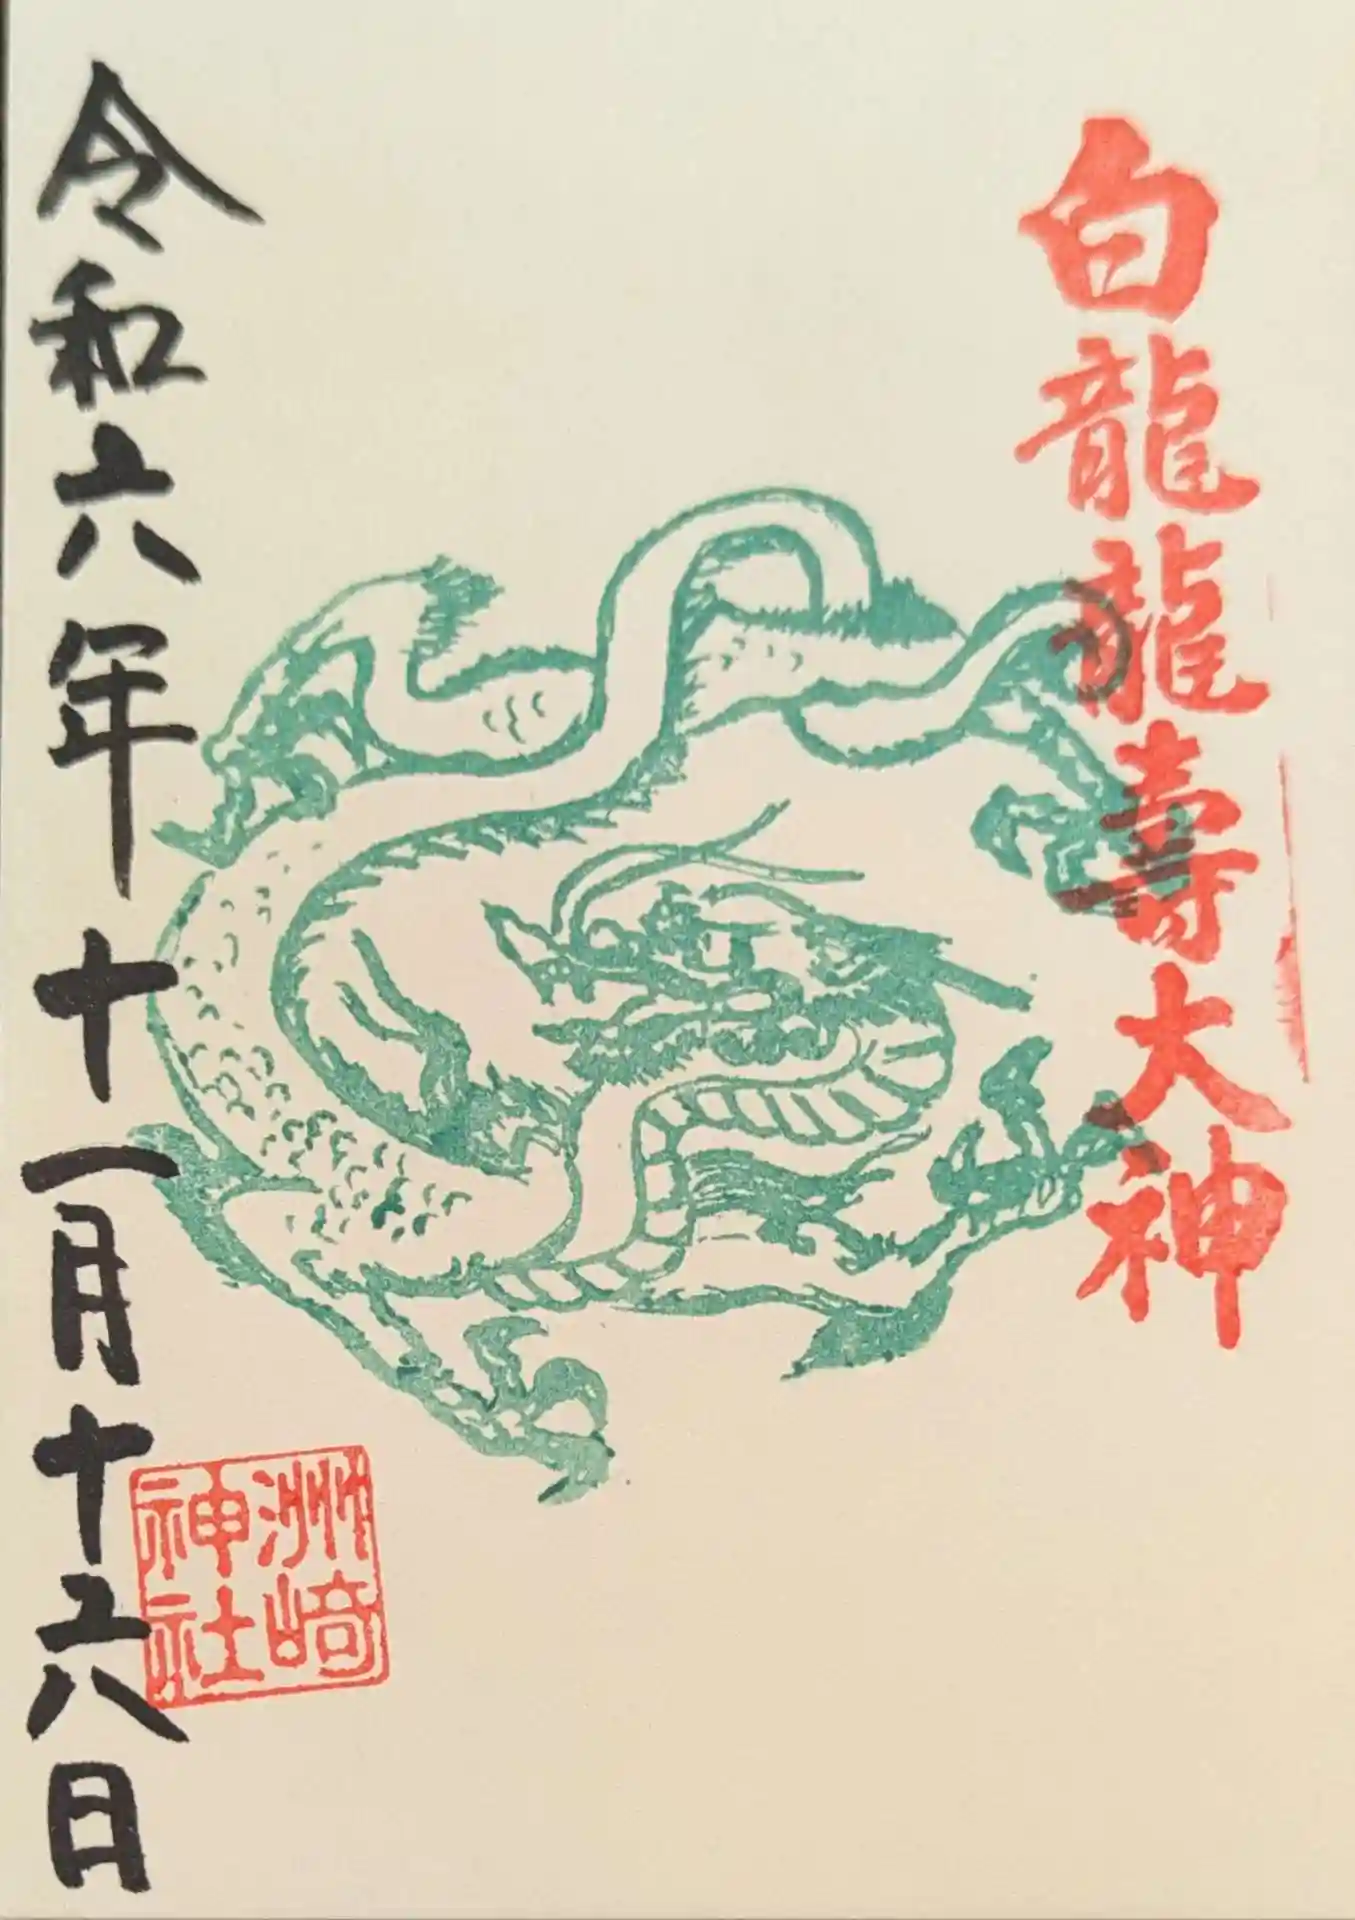 白龍龍壽大神
洲崎
神社
令和六年十一月十六日